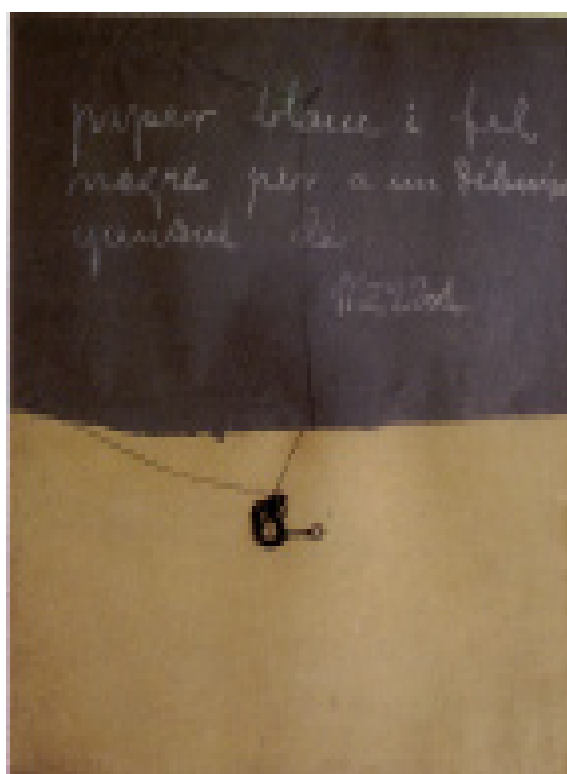 paper blanc i fil
negre per a un dibuix
de